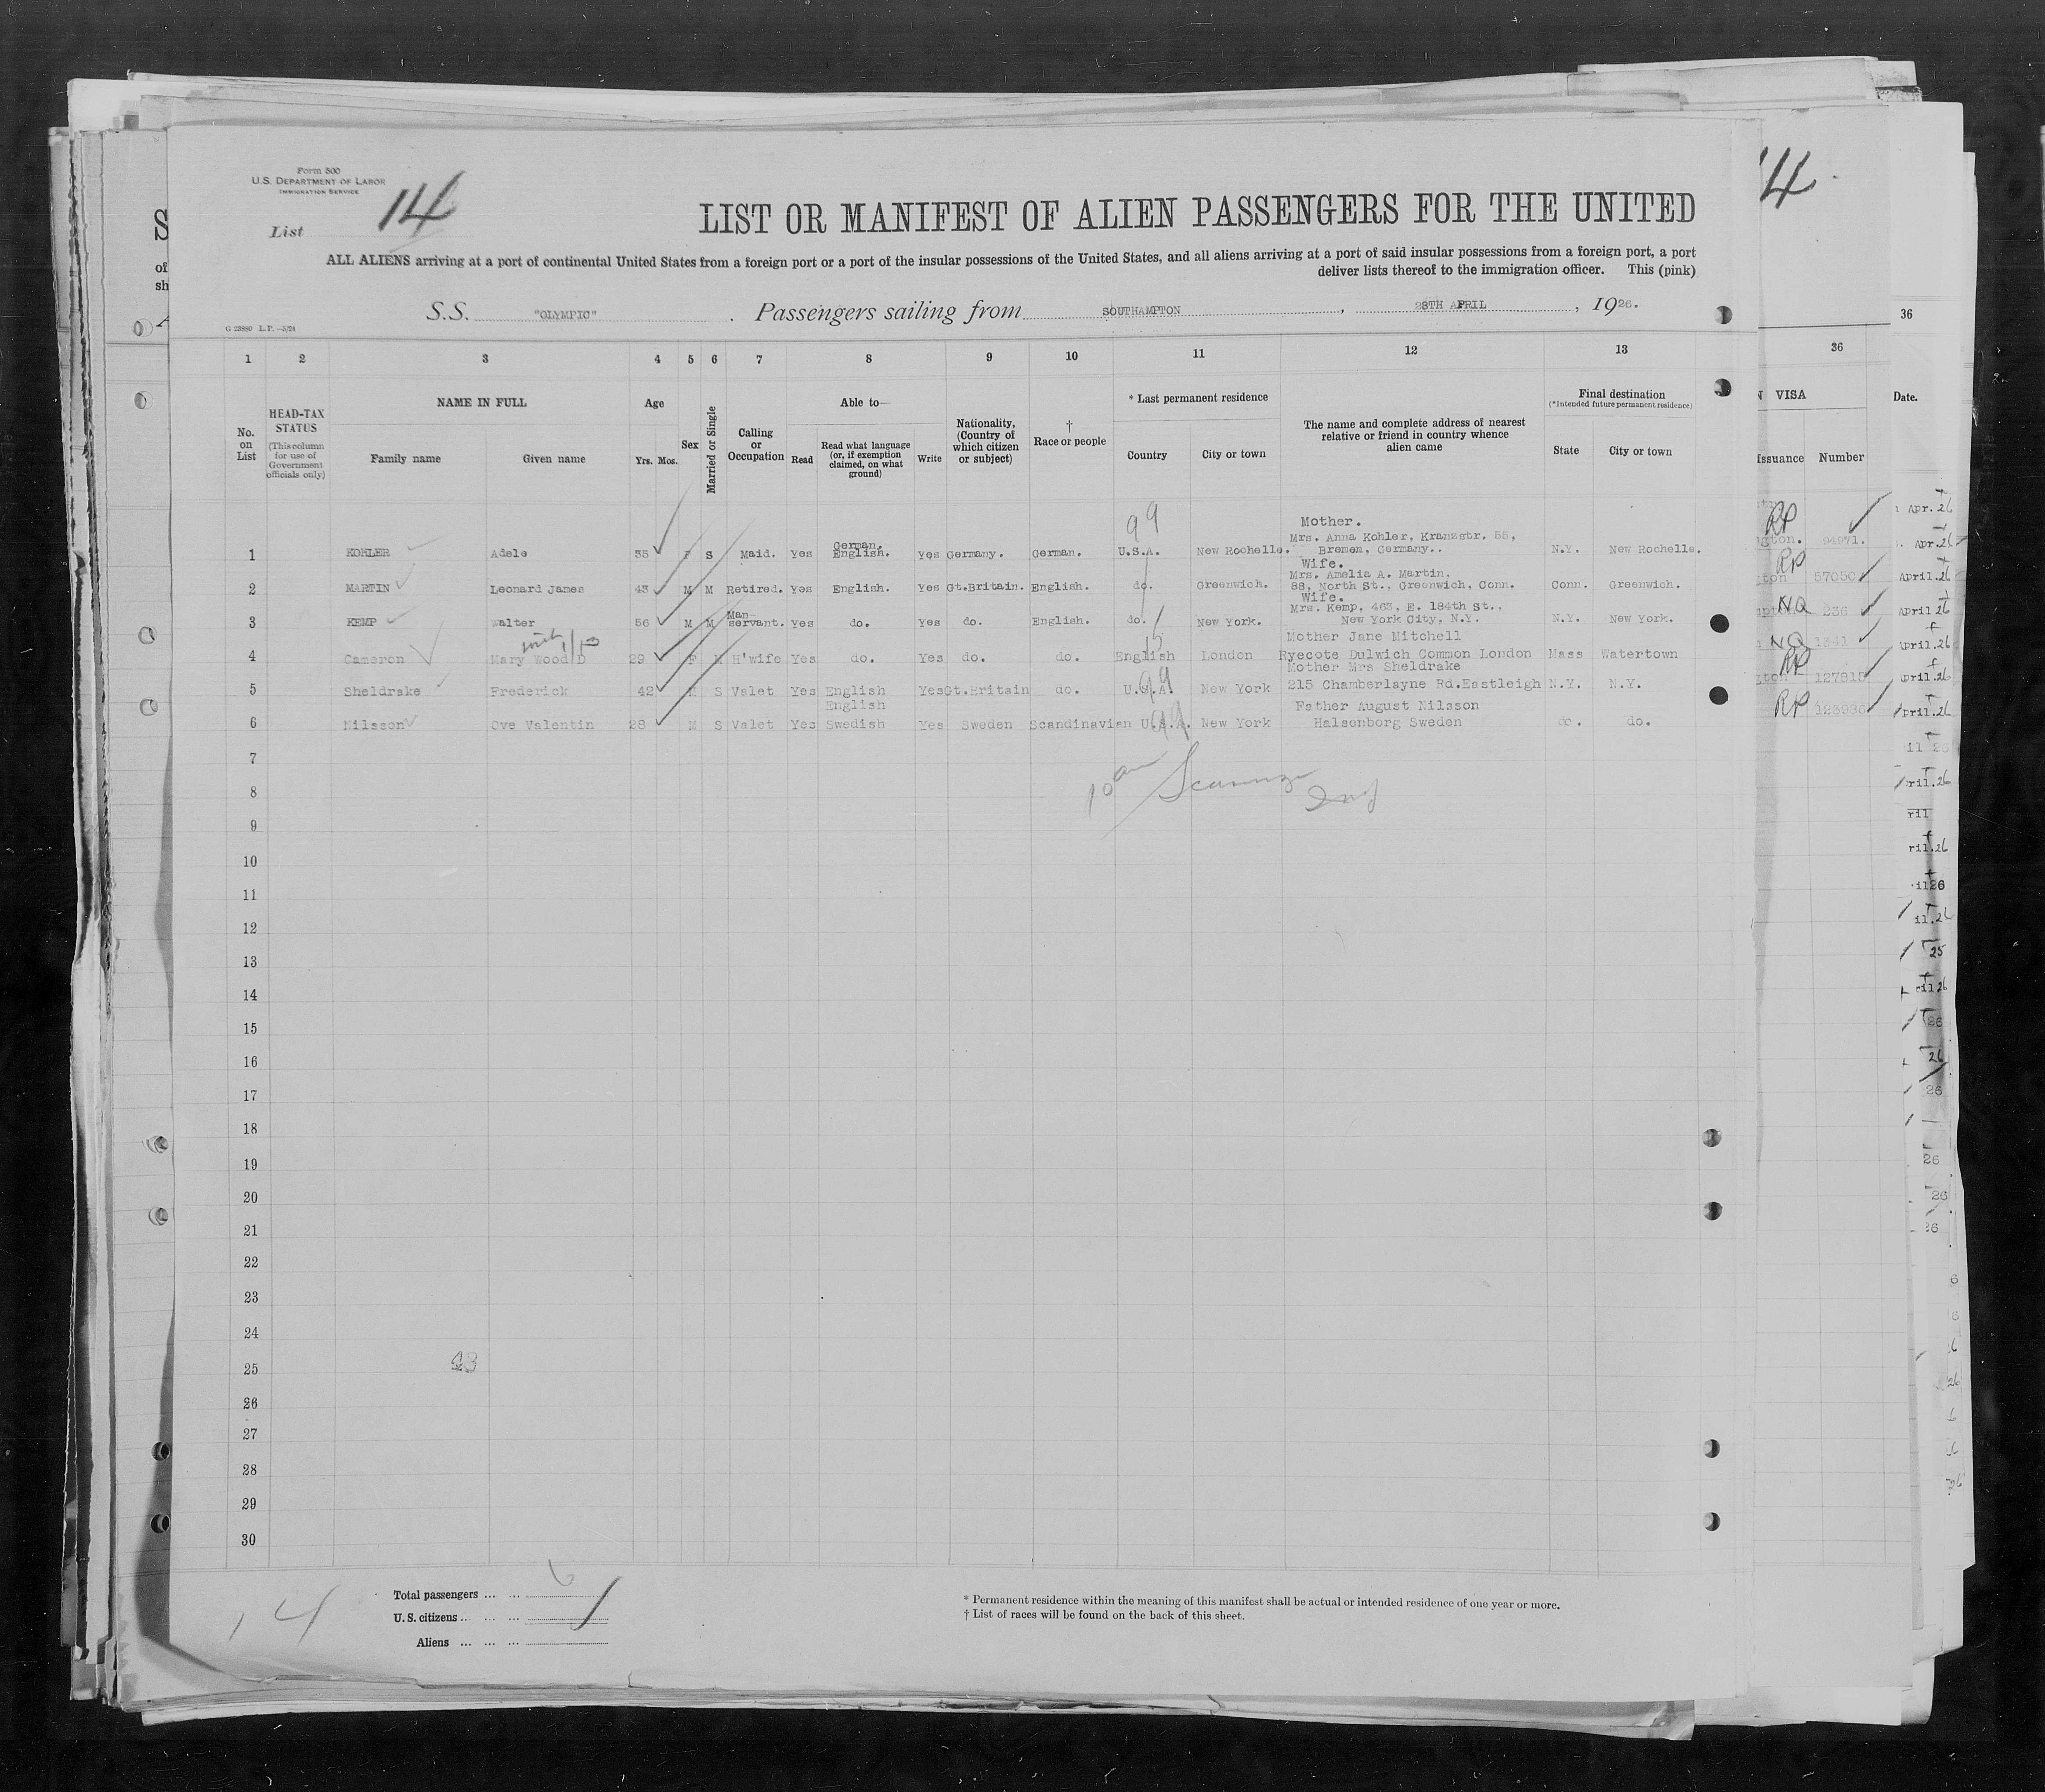 Form 500
U.S. DEPARTMENT OF LABOR
IMMIGRATION SERVICE
List 14
LIST OR MANIFEST OF ALIEN PASSENGERS FOR THE UNITED
ALL ALIENS arriving at a port of continental United States from a foreign port or a port of the insular possessions of the United States, and all aliens arriving at a port of said insular possessions from a foreign port, a port
deliver lists thereof to the immigration officer. This (pink)
S.S. "OLYMPIC". Passengers sailing from SOUTHAMPTON, 28TH APRIL, 1926.
1 2 3 4 5 6 7 8 9 10 11 12 13 36
No. on List
HEAD-TAX STATUS (This column for use of Government officials only)
NAME IN FULL
Family name Given name
Age Yrs. Mos.
Sex
Married or Single
Calling or Occupation
Able to—
Read Read what language (or, if exemption claimed, on what ground) Write
Nationality, (Country of which citizen or subject)
† Race or people
* Last permanent residence
Country City or town
The name and complete address of nearest relative or friend in country whence alien came
Final destination (*Intended future permanent residence)
State City or town
VISA Issuance Number Date.
1 KOHLER Adele 35 F S Maid. Yes German. English. Yes Germany. German. U.S.A. New Rochelle. Mother. Mrs. Anna Kohler, Kranzstr. 55, Bremen, Germany.. N.Y. New Rochelle. 94971.
2 MARTIN Leonard James 43 M M Retired. Yes English. Yes Gt.Britain. English. do. Greenwich. Wife. Mrs. Amelia A. Martin, 88, North St., Greenwich, Conn. Conn. Greenwich. 57050
3 KEMP Walter 56 M M Man-servant. Yes do. Yes do. English. do. New York. Wife. Mrs. Kemp, 463, E. 184th St., New York City, N.Y. N.Y. New York. 236
4 Cameron Mary Wood D 29 F M H'wife Yes do. Yes do. do. English London Mother Jane Mitchell Ryecote Dulwich Common London Mass Watertown 1341
5 Sheldrake Frederick 42 M S Valet Yes English Yes Gt.Britain do. U.S.A. New York Mother Mrs Sheldrake 215 Chamberlayne Rd.Eastleigh N.Y. N.Y. 127815
6 Nilsson Ove Valentin 28 M S Valet Yes English Swedish Yes Sweden Scandinavian U.S.A. New York Father August Nilsson Halsenborg Sweden do. do. 123936
7
8
9
10
11
12
13
14
15
16
17
18
19
20
21
22
23
24
25
26
27
28
29
30
14
Total passengers ... ... 6
U.S. citizens ... ... ...
Aliens ... ... ...
* Permanent residence within the meaning of this manifest shall be actual or intended residence of one year or more.
† List of races will be found on the back of this sheet.